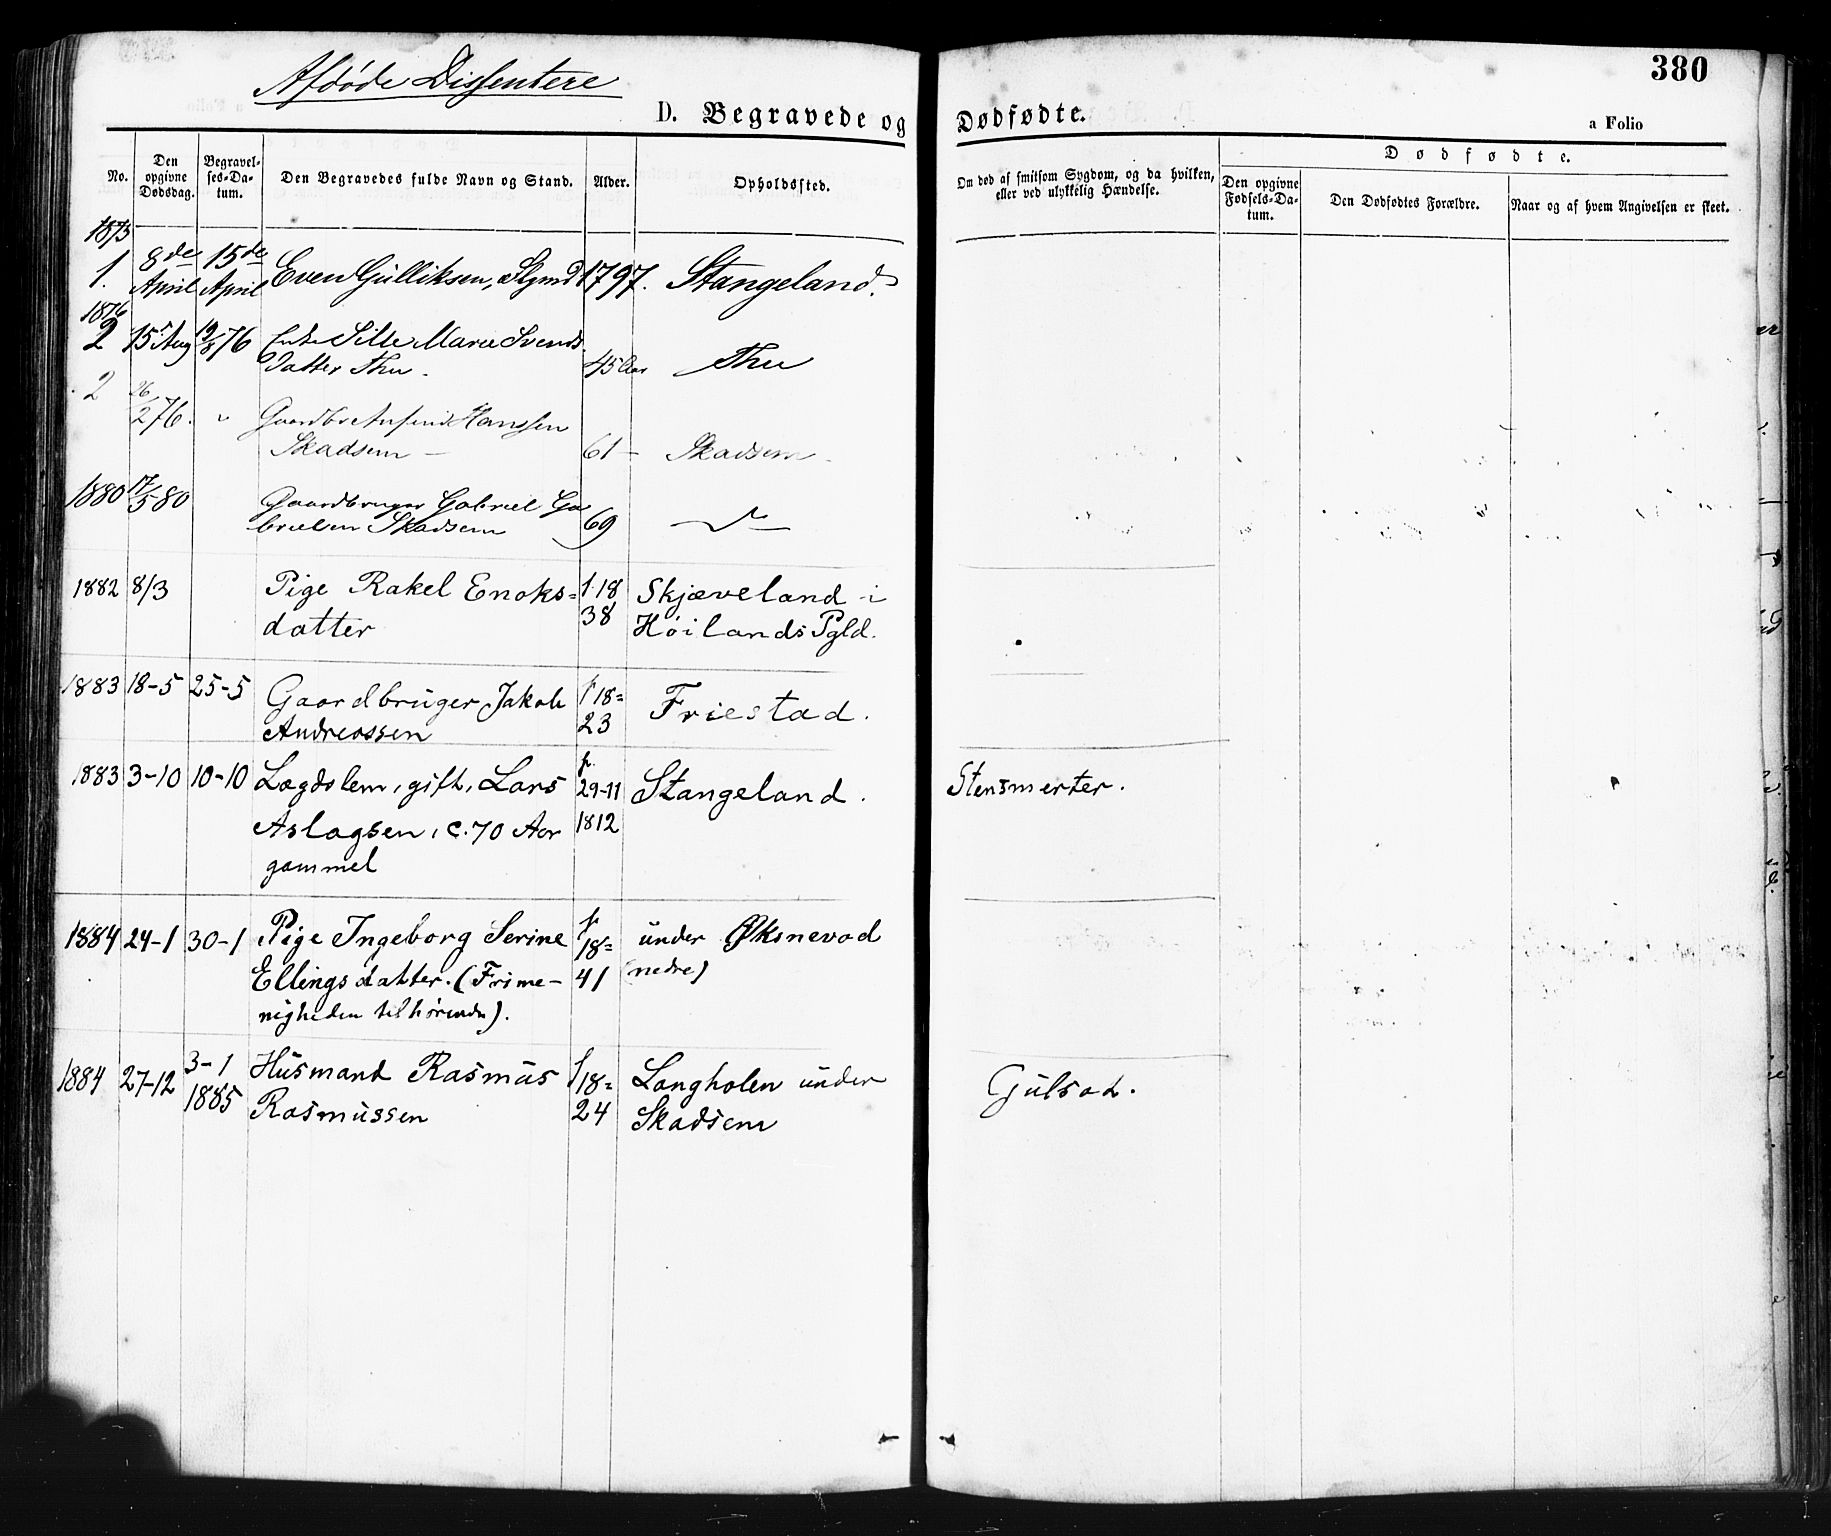 Afdøde Dissentere
380
D. Begravede og Dødfødte.
a Folio
No.
Den opgivne Dødsdag.
Begravelses-Datum.
Den Begravedes fulde Navn og Stand.
Alder.
Opholdssted.
Om død af smitsom Sygdom, og da hvilken, eller ved ulykkelig Hændelse.
Dødfødte.
Den opgivne Fødsels-Datum.
Den Dødfødtes Forældre.
Naar og af hvem Angivelsen er skeet.
1873
1. 8de April 15de April Even Gulliksen, 1797. Stangeland.
1876
2 15 Aug 19/8 76 Enke Sille Marie Svends
Datter Thu 45 Aar Thu
2 26/2 76. " Gaardbr Hanssen
Skadsem — 61 — Skadsem
1880 17/5 80 Gaardbruger Gabriel Ga
brielsen Skadsem 69
1882 8/3 Pige Rakel Enoks= f. 18 Skjæveland i
datter 38 Høilands Pgld.
1883 18-5 25-5 Gaardbruger Jakob f 18= Friestad.
Andreassen 23
1883 3-10 10-10 Lægdslem, gift, Lars f. 29-11 Stangeland. Stensmerter.
Aslagsen, c. 70 Aar 1812
gammel
1884 24-1 30-1 Pige Ingeborg Serine f. 18= under Øksnevad
Ellingsdatter. (Frime- 41 (nedre)
nigheden tilhørende).
1884 27-12 3-1 Husmand Rasmus f 18= Langholen under Gulsot.
1885 Rasmussen 24 Skadsem